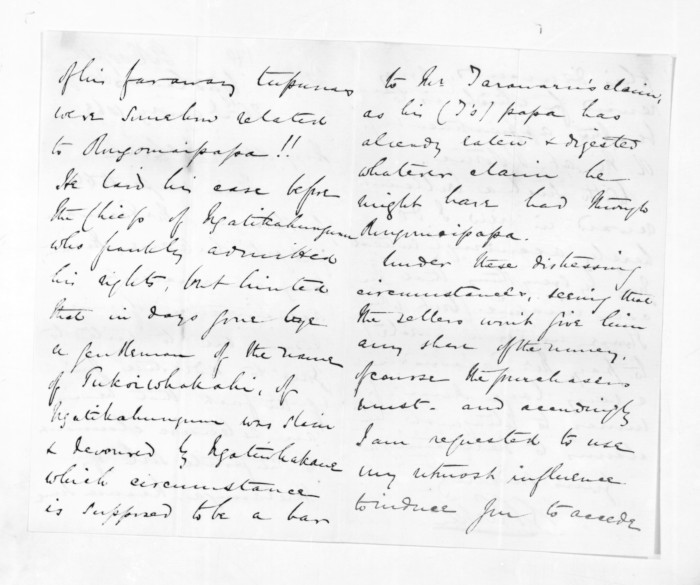 of his faraway tupunas
were somehow related
to Rongomaipapa!!
He laid his case before
the Chiefs of Ngatikahungunu
who frankly admitted
his rights, but hinted
that in days gone bye
a gentleman of the name
of Tukoriwhakahi, of
Ngatikahungunu was slain
& devoured by Ngatiwhakaue
which circumstance
is supposed to be a bar
to Mr Taranaru's claim,
as his (T's) papa has
already eaten & digested
whatever claim he
might have had through
Rongomaipapa.
Under these distressing
circumstances, seeing that
the sellers wont give him
any share of the money,
of course the purchasers
must - and accordingly
I am requested to use
my utmost influence
to induce you to accede